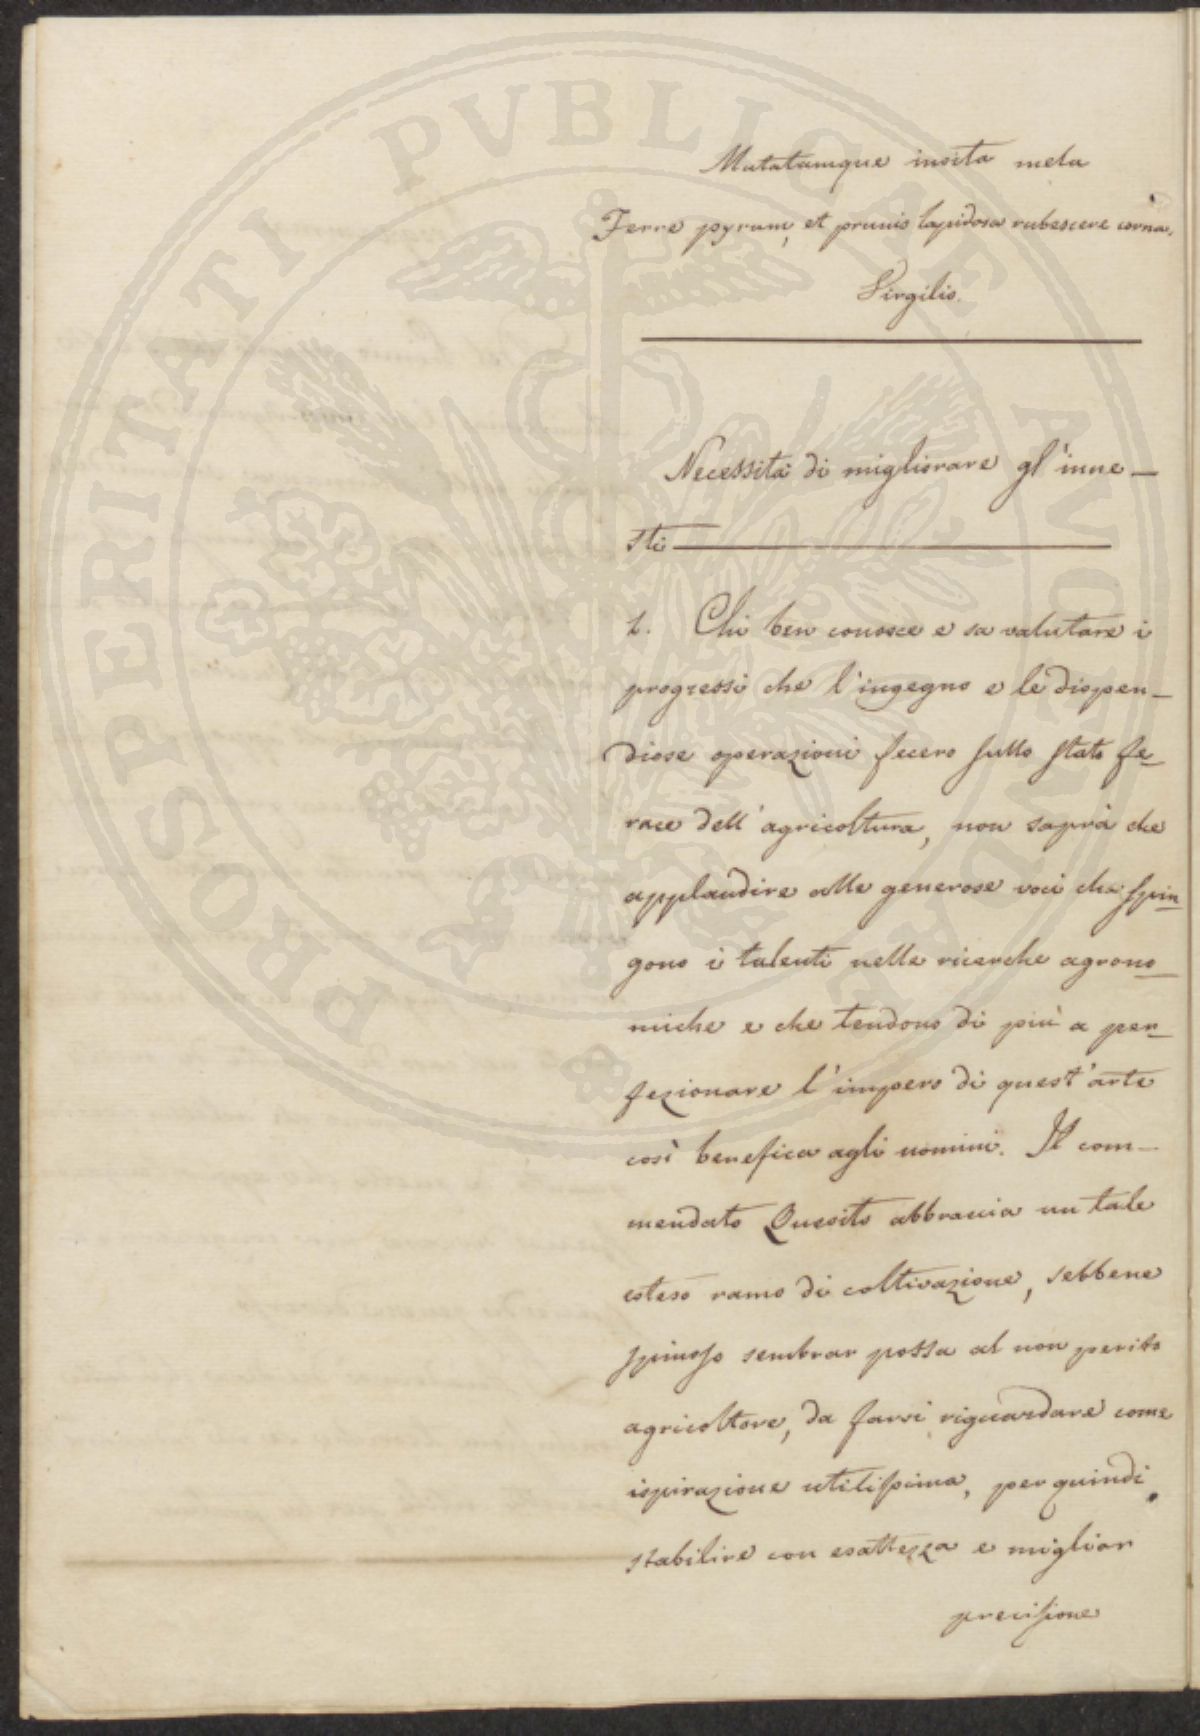 PROSPERITATI PVBLICAE AVGENDAE
Mutatamque insita mela
Ferre pyrum, et prunis lapidosa rubescere corna.
Virgilio.
Necessità di migliorare gl'inne-
sti
1. Chi ben conosce e sa valutare i
progressi che l'ingegno e le dispen-
diose operazioni fecero sullo stato fe-
race dell'agricoltura, non saprà che
applaudire alle generose voci che spin-
gono i talenti nelle ricerche agrono-
miche e che tendono di più a per-
fezionare l'impero di quest'arte
così benefica agli uomini. Il com-
mendato Quesito abbraccia un tale
esteso ramo di coltivazione, sebbene
spinoso sembrar possa al non perito
agricoltore, da farsi riguardare come
ispirazione utilissima, per quindi
stabilire con esattezza e miglior
precisione